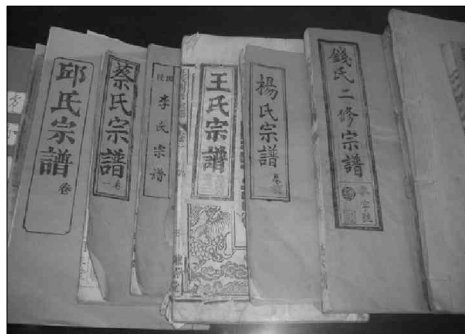 邱氏宗譜
卷
蔡氏宗譜
卷一
李氏宗譜
王氏宗譜
楊氏宗譜
卷
錢氏二修宗譜